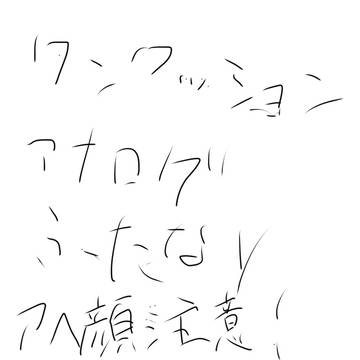 ワンクッション
アナログ
ふたなり
アヘ顔注意!